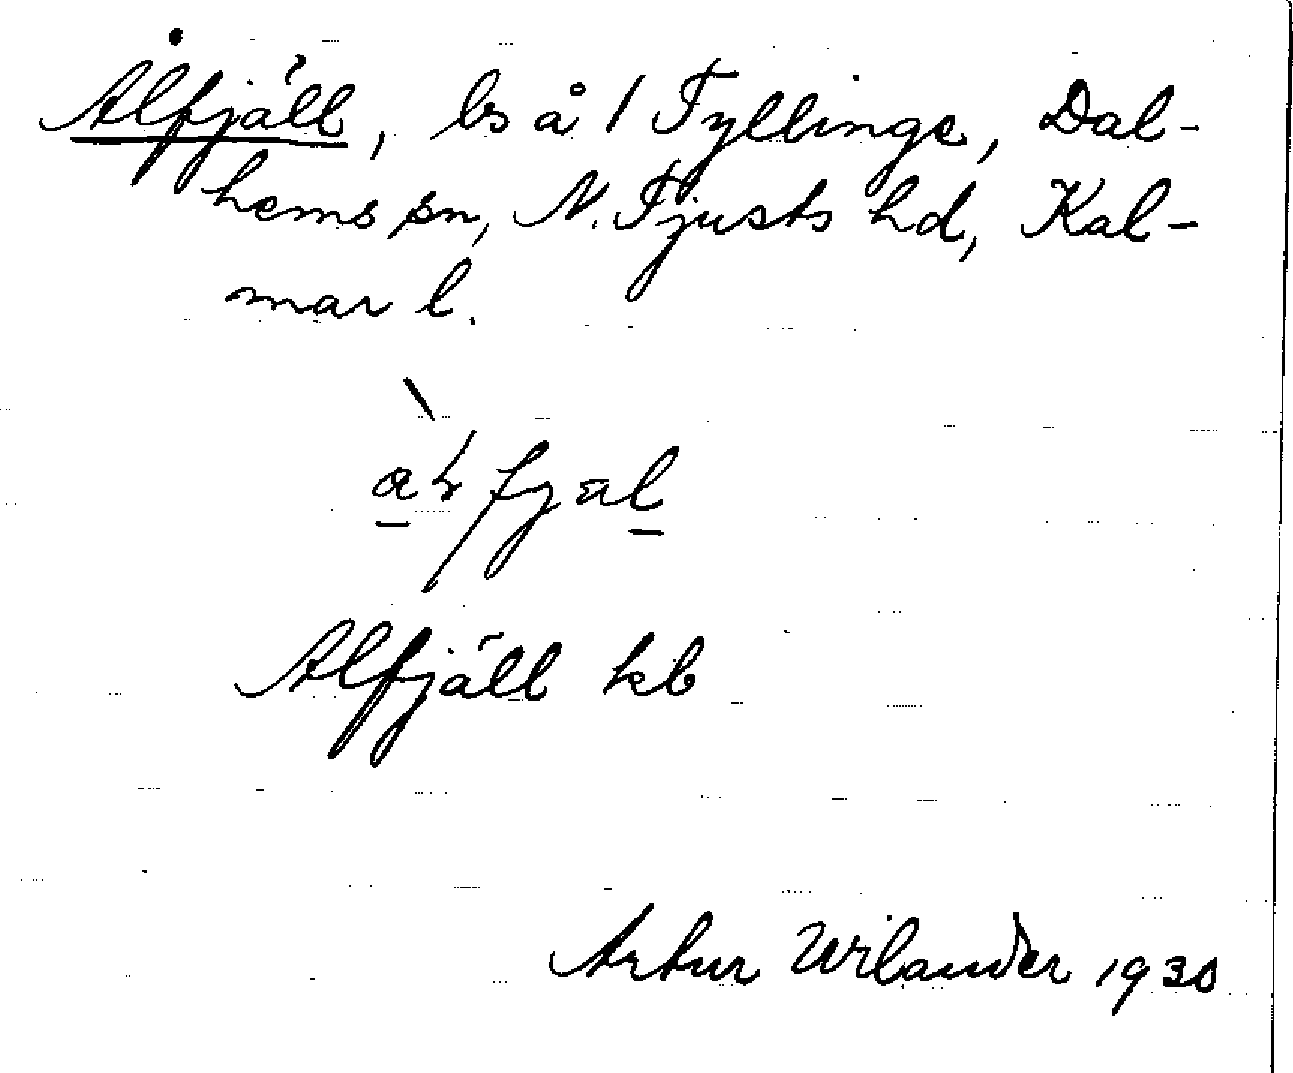 Ålfjäll, ls å 1 Tyllinge, Dal-
hems sn, N. Tjusts hd, Kal-
mar l.
fjäl
Alfjäll kb
Artur Wilander 1930